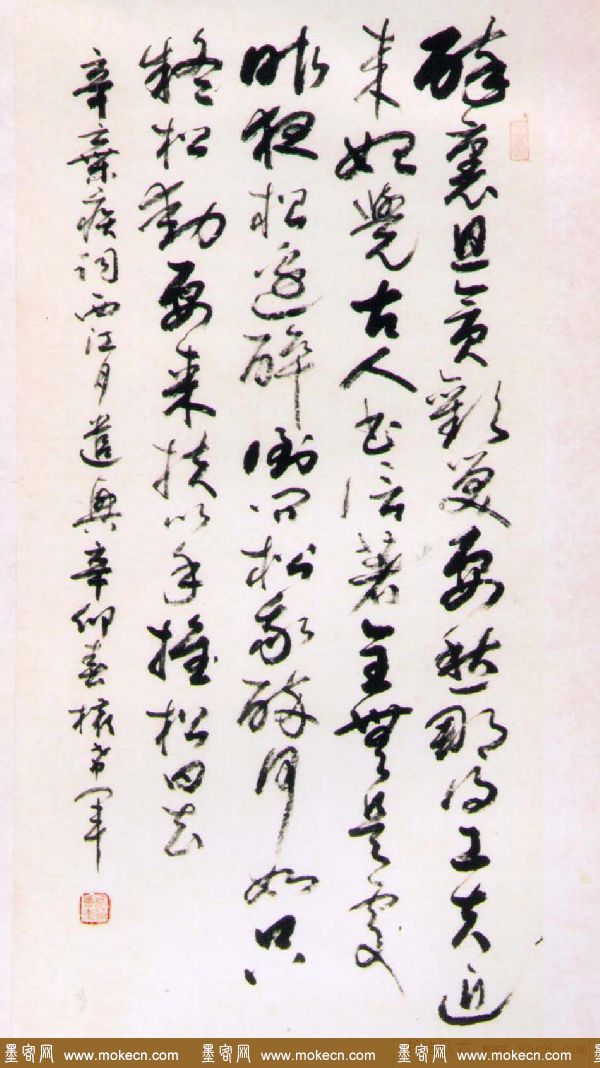 醉裏且貪歡笑要愁那得工夫近
來始覺古人書信著全無是處
昨夜松邊醉倒問松我醉何如只
疑松動要來扶以手推松曰去
辛棄疾詞西江月遣興辛卯春
墨客网 www.mokecn.com 墨客网 www.mokecn.com 墨客网 www.mokecn.com